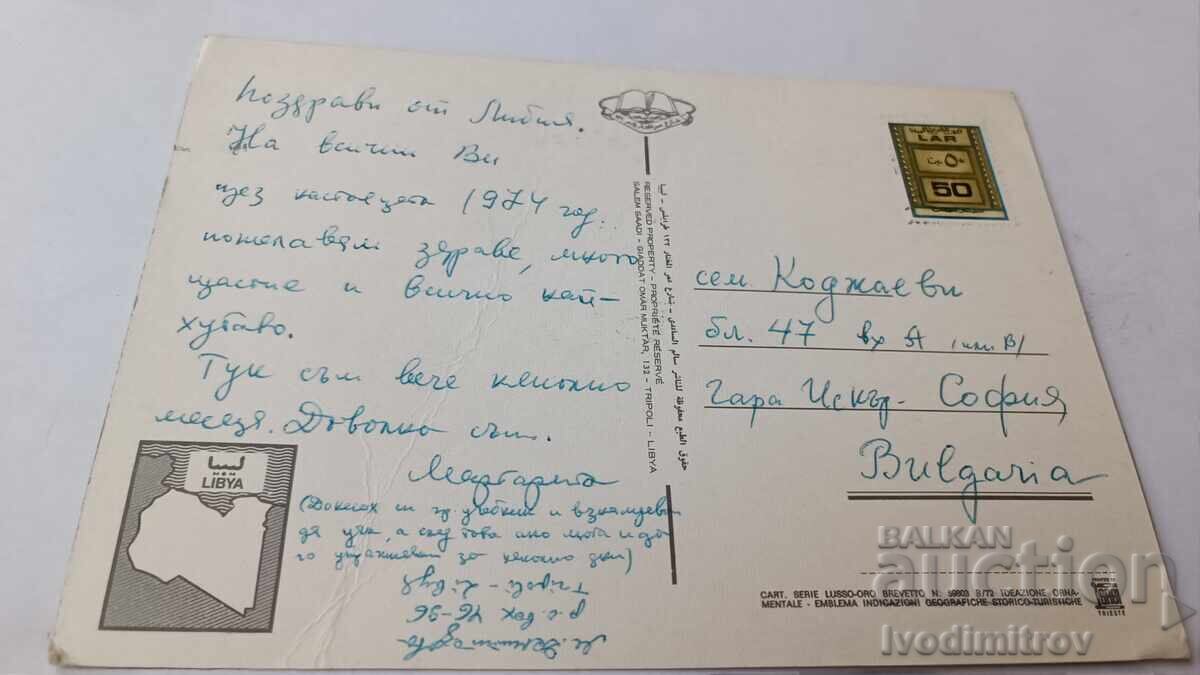 Поздрави от Либия.
На всички Ви
през настоящета 1974 год.
пожелавам здраве, много
щастие и всичко най-
хубаво.
Тук съм вече няколко
месеца. Доволна съм.
Маргарита
(Донесох си гр. учебник и
да уча, а след това ако мога и да
го за няколко дни)
Tripoli - Libya
p.o. box 46-96
ليبيا
LIBYA
حقوق الطبع محفوظة للناشر سالم الساعدي - شارع عمر المختار ١٣٢ طرابلس - ليبيا
RESERVED PROPERTY - PROPRIÉTÉ RÉSERVÉ
SALEM SAADI - GIADDAT OMAR MUKTAR, 132 - TRIPOLI - LIBYA
LAR
50
сем. Коджаеви
бл. 47 вх А (или В)
Гара Искър - София
Bulgaria
CART. SERIE LUSSO-ORO BREVETTO N. 59803 B/72 IDEAZIONE ORNA-
MENTALE - EMBLEMA INDICAZIONI GEOGRAFICHE STORICO-TURISTICHE
TRIESTE
BALKAN
auction
Ivodimitrov